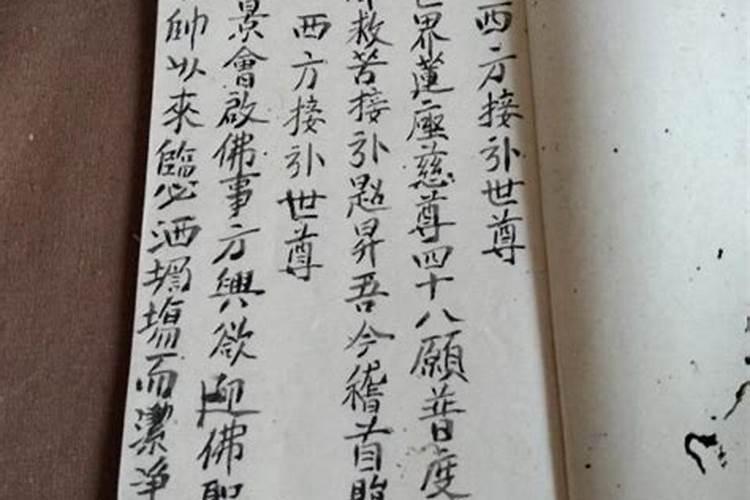 西方接引世尊
世界蓮座慈尊四十八願普度
救苦接引超昇吾今稽首瞻
西方接引世尊
景會啟佛事方興欲迎佛聖
帥以來臨必洒壇場而潔淨